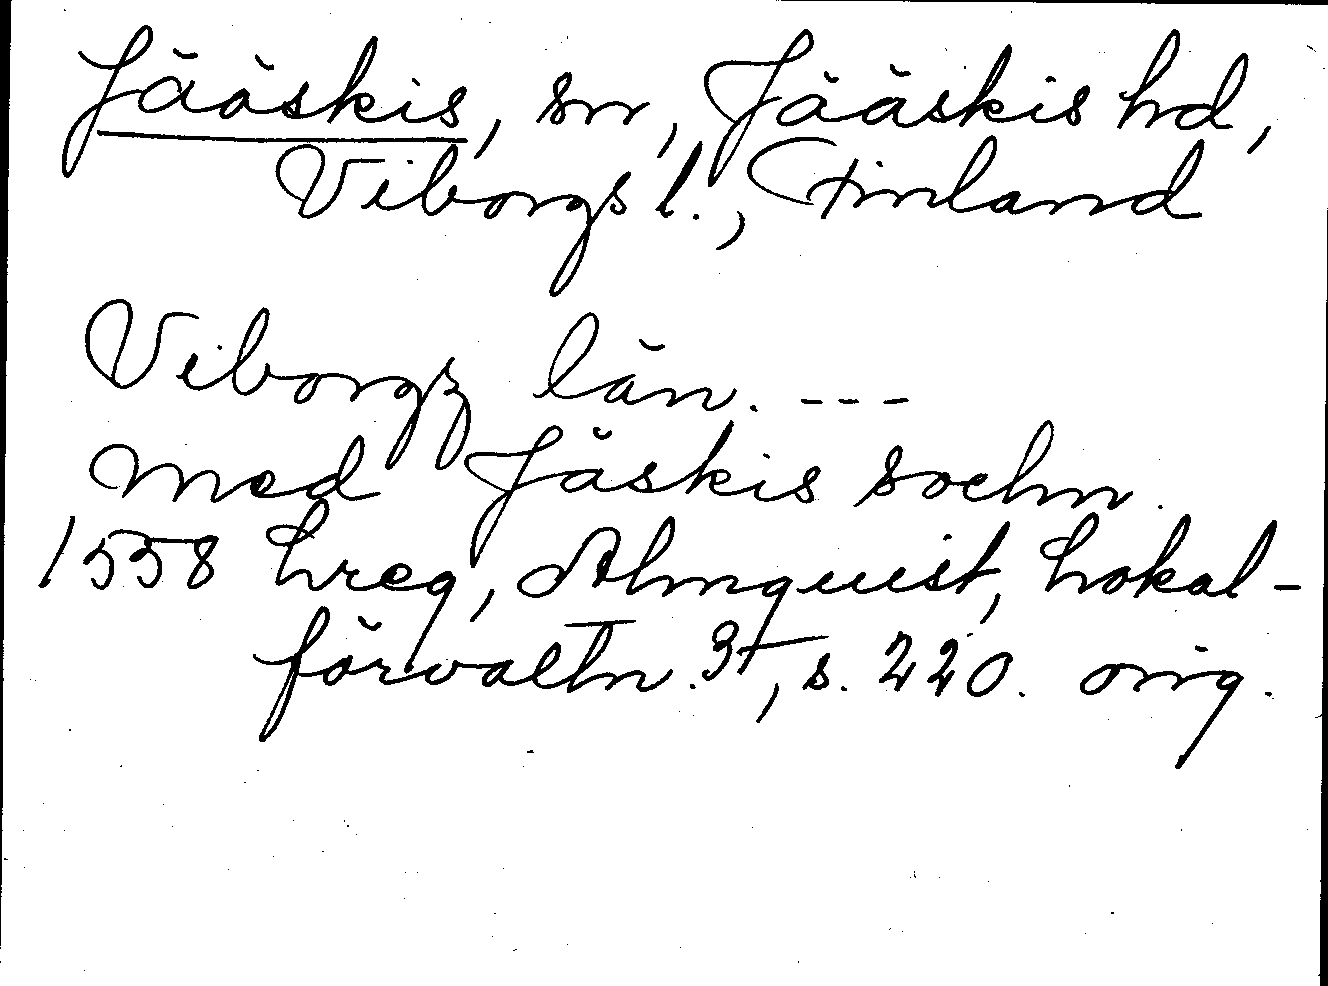 Jääskis, sn, Jääskis hd,
Viborgs l., Finland
Viborgz län. ---
Med Jäskis sochn.
1558 Lreg, Almquist, Lokal-
förvaltn. 3, s. 220. orig.